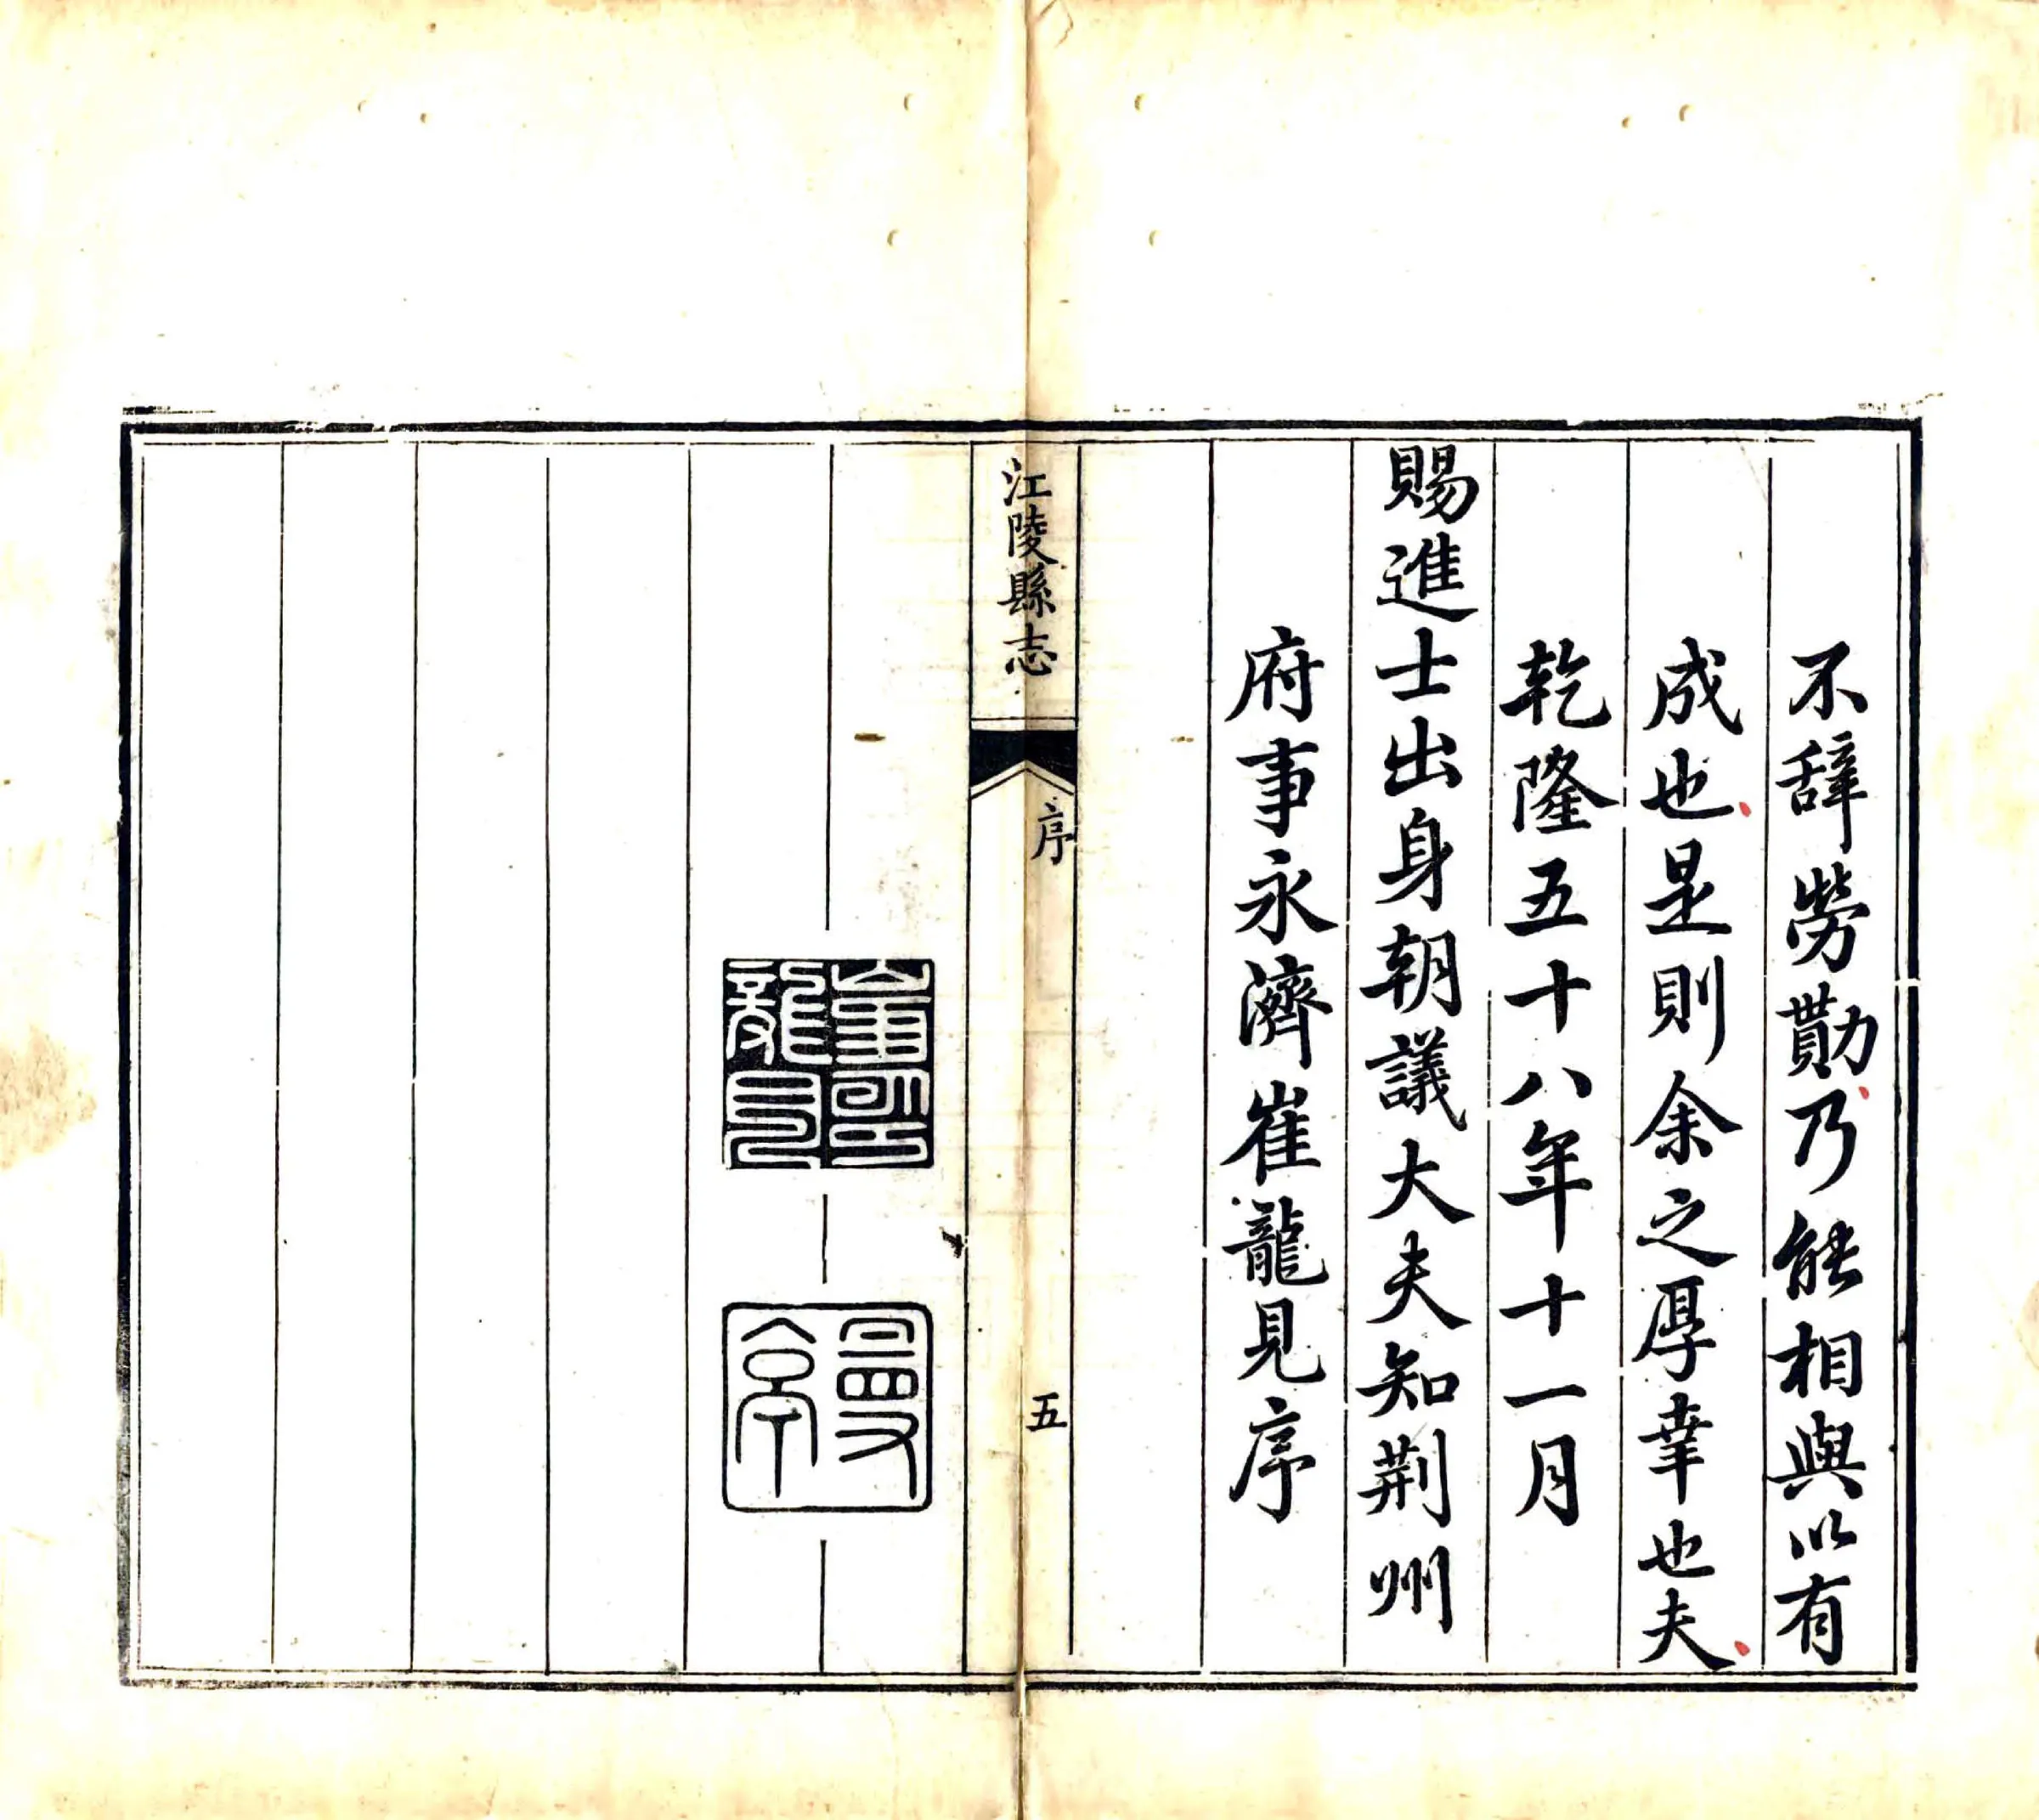 不辞勞勩乃能相與以有
成也是則余之厚幸也夫
乾隆五十八年十一月
賜進士出身朝議大夫知荆州
府事永濟崔龍見序
江陵縣志
序
五
曼亭